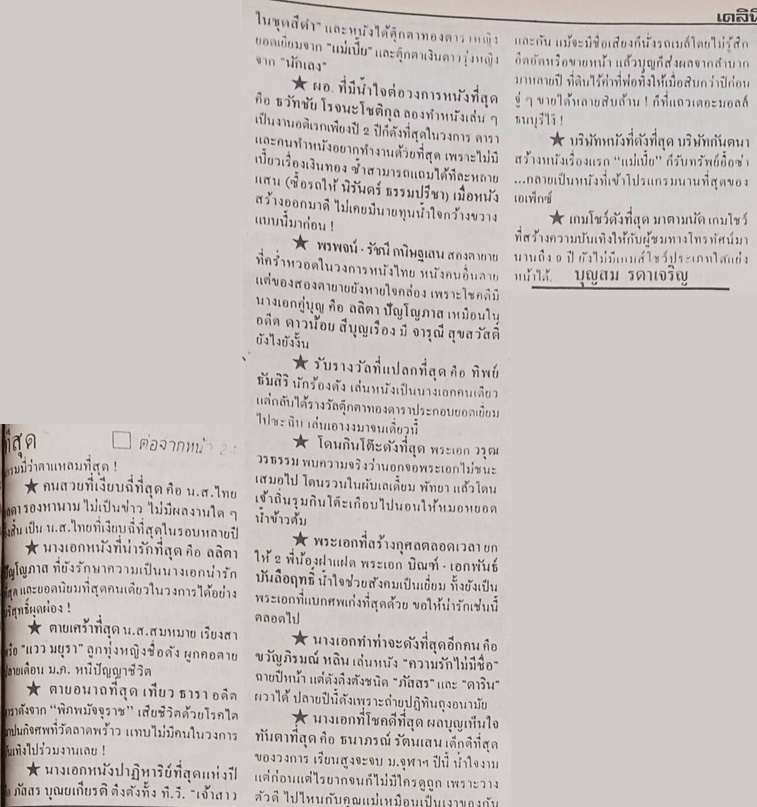 ที่สุด ☐ ต่อจากหน้า
ว่าตาแหลมที่สุด !
★ คนสวยที่เงียบฉี่ที่สุด คือ น.ส.ไทย
รองหานาม ไม่เป็นข่าว ไม่มีผลงานใด ๆ
เป็น น.ส.ไทยที่เงียบฉี่ที่สุดในรอบหลายปี
★ นางเอกหนังที่น่ารักที่สุด คือ ลลิตา
ปัญโญภาส ที่ยังรักษาความเป็นนางเอกน่ารัก
ที่สุด และยอดนิยมที่สุดคนเดียวในวงการได้อย่าง
บริสุทธิ์ผุดผ่อง !
★ ตายเศร้าที่สุด น.ส.สมหมาย เรียงสา
หรือ "แวว มยุรา" ลูกทุ่งหญิงชื่อดัง ผูกคอตาย
ปลายเดือน ม.ค. หนีปัญญาชีวิต
★ ตายอนาถที่สุด เทียว ธารา อดีต
ดาราดังจาก "พิภพมัจจุราช" เสียชีวิตด้วยโรคไต
ฌาปนกิจศพที่วัดลาดพร้าว แทบไม่มีคนในวงการ
บันเทิงไปร่วมงานเลย !
★ นางเอกหนังปาฏิหาริย์ที่สุดแห่งปี
คือ ภัสสร บุณยเกียรติ ดึงดังทั้ง ที.วี. "เจ้าสาว
ในชุดสีดำ" และหนังได้ตุ๊กตาทองดาราหญิง
ยอดเยี่ยมจาก "แม่เบี้ย" และตุ๊กตาเงินดาวรุ่งหญิง
จาก "นักเลง"
★ ผอ. ที่มีน้ำใจต่อวงการหนังที่สุด
คือ ธวัทชัย โรจนะโชติกุล ลองทำหนังเล่น ๆ
เป็นงานอดิเรกเพียงปี 2 ปีก็ดังที่สุดในวงการ ดารา
และคนทำหนังอยากทำงานด้วยที่สุด เพราะไม่มี
เบี้ยวเรื่องเงินทอง ซ้ำสามารถแถมได้ทีละหลาย
แสน (ซื้อรถให้ นิรันดร์ ธรรมปรีชา) เมื่อหนัง
สร้างออกมาดี ไม่เคยมีนายทุนน้ำใจกว้างขวาง
แบบนี้มาก่อน !
★ พรพจน์ - รัชนี กนิษฐเสน สองตายาย
ที่คร่ำหวอดในวงการหนังไทย หนังคนอื่นตาย
แต่ของสองตายายยังหายใจคล่อง เพราะโชคดีมี
นางเอกคู่บุญ คือ ลลิตา ปัญโญภาส เหมือนใน
อดีต ดาวน้อย สีบุญเรือง มี จารุณี สุขสวัสดิ์
ยังไงยังงั้น
★ รับรางวัลที่แปลกที่สุด คือ ทิพย์
ธัมสิริ นักร้องดัง เล่นหนังเป็นนางเอกคนเดียว
แต่กลับได้รางวัลตุ๊กตาทองดาราประกอบยอดเยี่ยม
ไปซะฉิบ เล่นเอางงมาจนเดี๋ยวนี้
★ โดนกินโต๊ะดังที่สุด พระเอก วรุฒ
วรธรรม พบความจริงว่านอกจอพระเอกไม่ชนะ
เสมอไป โดนรวนในผับเลเดี้ยม พัทยา แล้วโดน
เจ้าถิ่นรุมกินโต๊ะเกือบไปนอนให้หมอหยอด
น้ำข้าวต้ม
★ พระเอกที่สร้างกุศลตลอดเวลา ยก
ให้ 2 พี่น้องฝาแฝด พระเอก บิณฑ์ - เอกพันธ์
บันลือฤทธิ์ น้ำใจช่วยสังคมเป็นเยี่ยม ทั้งยังเป็น
พระเอกที่แบกศพเก่งที่สุดด้วย ขอให้น่ารักเช่นนี้
ตลอดไป
★ นางเอกทำท่าจะดังที่สุดอีกคน คือ
ขวัญภิรมณ์ หลิน เล่นหนัง "ความรักไม่มีชื่อ"
ถ่ายปีหน้า แต่ดังตึงตังชนิด "ภัสสร" และ "ดาริน"
ผวาได้ ปลายปีนี้ดังเพราะถ่ายปฏิทินถุงอนามัย
★ นางเอกที่โชคดีที่สุด ผลบุญเห็นใจ
ทันตาที่สุด คือ ธนาภรณ์ รัตนเสน เด็กดีที่สุด
ของวงการ เรียนสูงจะจบ ม.จุฬาฯ ปีนี้ น้ำใจงาม
แต่ก่อนแต่ไรยากจนก็ไม่มีใครดูถูก เพราะวาง
ตัวดี ไปไหนกับคุณแม่เหมือนเป็นเงาของกัน
เดลินิ
และกัน แม้จะมีชื่อเสียงก็นั่งรถเมล์โดยไม่รู้สึก
อึดอัดหรือขายหน้า แล้วบุญก็ส่งผลจากลำบาก
มาหลายปี ที่ดินไร้ค่าที่พ่อทิ้งให้เมื่อสิบกว่าปีก่อน
จู่ ๆ ขายได้หลายสิบล้าน ! ก็ที่แถวเดอะมอลล์
ธนบุรีไง !
★ บริษัทหนังที่ดังที่สุด บริษัทกันตนา
สร้างหนังเรื่องแรก "แม่เบี้ย" ก็รับทรัพย์อื้อซ่า
...กลายเป็นหนังที่เข้าโปรแกรมนานที่สุดของ
เอเพ็กซ์
★ เกมโชว์ดังที่สุด มาตามนัด เกมโชว์
ที่สร้างความบันเทิงให้กับผู้ชมทางโทรทัศน์มา
นานถึง 9 ปี ยังไม่มีเกมส์โชว์ประเภทใดแย่ง
หน้าได้. บุญสม รดาเจริญ